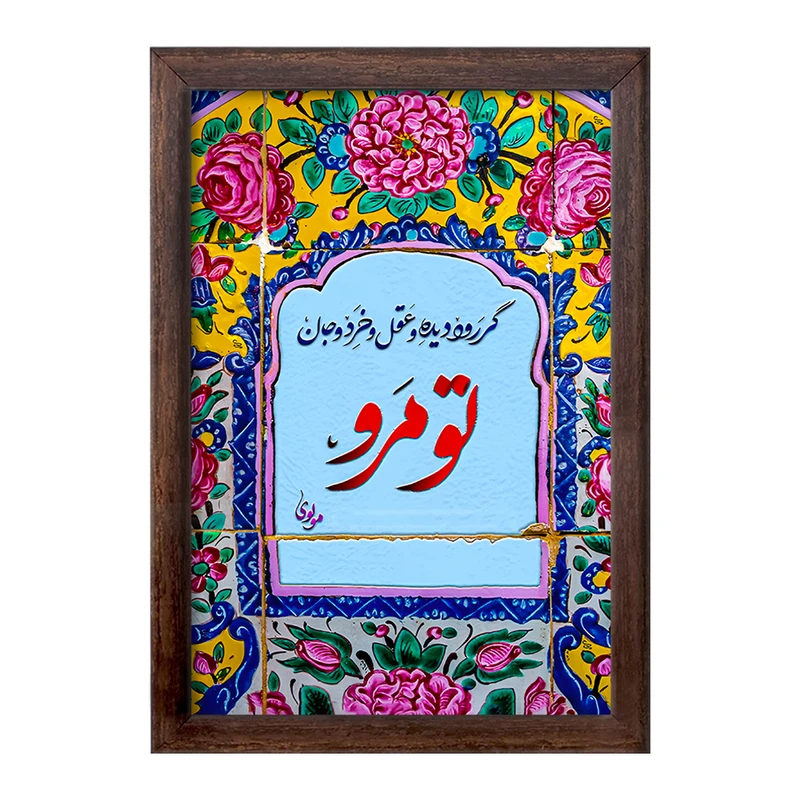 گر رَود دیده و عَقل و خِرَد و جان
تو مَرو
مولوی